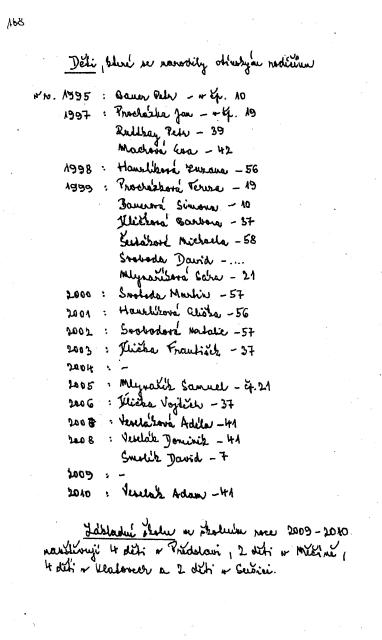 168
Děti, které se narodily obinským rodičům
v r. 1995 : Bauer Petr - v čp. 10
1997 : Procházka Jan - v čp. 19
Ruttkay Petr - 39
Machová Eva - 42
1998 : Hanzlíková Zuzana - 56
1999 : Procházková Tereza - 19
Bauerová Simona - 10
Kličková Barbora - 37
Šestáková Michaela - 58
Svoboda David - ....
Mlynaříková Sára - 21
2000 : Svoboda Martin - 57
2001 : Hanzlíková Eliška - 56
2002 : Svobodová Natalie - 57
2003 : Klička František - 37
2004 : -
2005 : Mlynařík Samuel - čp. 21
2006 : Klička Vojtěch - 37
2007 : Veseláková Adéla - 41
2008 : Veselák Dominik - 41
Smolík David - 7
2009 : -
2010 : Veselák Adam - 41
Základní školu ve školním roce 2009-2010
navštěvují 4 děti v Předslavi, 2 děti v Měčíně,
4 děti v Klatovech a 2 děti v Sušici.